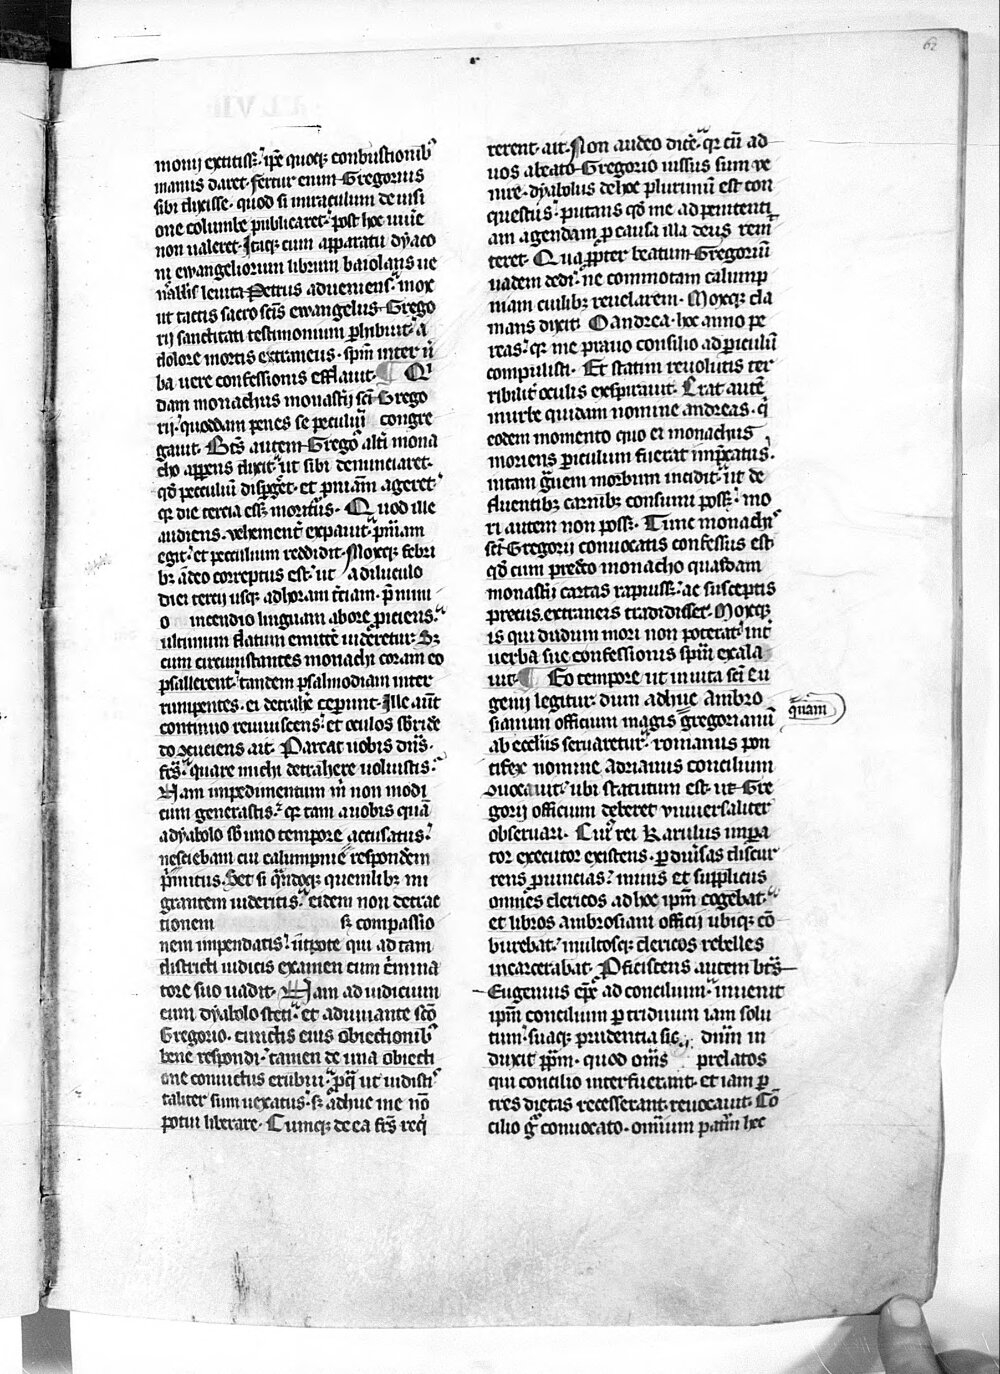 62
monij extitissꝫ. ip̄e quoqꝫ conbustionibꝫ
manus daret. fertur enim Gregorius
sibi dixisse. quod si miraculum de uisi
one columbe publicaret. post hoc uiu̾e
non ualeret. Itaqꝫ cum apparatu dyaco
ni ewangeliorum librum baiolans ue
n̾abilis leuita Petrus adueniens. mox
ut tactis sacro scīs ewangelijs Grego
rij sanctitati testimonium ꝑhibuit. a
dolore mortis extraneus. sp̄m inter ū
ba uere confessionis efflauit. ¶ Qi
dam monachus monast̾ij sc̄i Grego
rij. quoddam penes se peculiū congre
gauit. Bt̄s autem Grego alt̾i mona
cho apparens dixit. ut sibi denunciaret.
qd̄ peculiū disꝑg̾et. et pn̄iam ageret
qꝫ die tercia essꝫ moritur̾s. Quod ille
audiens. vehement̾ expauit. pn̄iam
egit. et peculium reddidit. Moxqꝫ febri
bꝫ adeo correptus est. ut a diluculo
diei tercij usqꝫ ad horam t̾ciam. p̄ nimi
o incendio linguam ab ore ꝓiciens.
ultimum flatum emitt̾e uideretur. Sꝫ
cum circumstantes monachi coram eo
psallerent. tandem psalmodiam inter
rumpentes. ei detrah̾e ceperunt. Ille aūt
continuo reuiuiscens. et oculos sbride
do aꝑiens ait. Parcat uobis dn̄s.
frēs. quare michi detrahere voluistis.
Nam impedimentum m̄ non modi
cum generastis. qꝫ tam a uobis quā
a dyabolo sb uno tempore accusatus.
nesciebam cui calumpnie respondēm
p̾mitus. Set si qn̄doqꝫ quemlibꝫ mi
grantem uideritis. eidem non detrac
tionem sꝫ compassio
nem impendatis. ūtpote qui ad tam
districti iudicis examen cum c̾mina
tore suo uadit. Nam ad iudicium
cum dyabolo steti. et adiuuante sc̄o
Gregorio. cunctis eius obiectionibꝫ
bene respondi. tamen de una obiecti
one conuictus erubui. ꝓ qua ut uidisti
taliter sum uexatus. sꝫ adhuc me nō
potui liberare. Cumqꝫ de ea frēs req̾
rerent. ait. Non audeo dic̾e. qꝫ cū ad
uos a beato Gregorio iussus sum ve
nire. dyabolus de hoc plurimū est con
questus. putans qd̄ me ad penitenti
am agendam ꝓ causa illa deus remi
teret. Qua ꝓpter beatum Gregoriū
uadem dedi. ne commotam calump
niam cuilibꝫ reuelarem. Moxqꝫ cla
mans dixit. O andrea. hoc anno pe
reas. qꝫ me prauo consilio ad ꝑiculū
compulisti. Et statim reuolutis ter
ribilit̾ oculis exspirauit. Erat autē
in urbe quidam nomine andreas. q̾
eodem momento quo ei monachus
moriens ꝑiculum fuerat imp̄catus.
in tam g̾uem morbum incidit. ut de
fluentibꝫ carnibꝫ consumi possꝫ. mo
ri autem non possꝫ. Tunc monachis
sc̄i Gregorij conuocatis confessus est.
qd̄ cum predc̄o monacho quasdam
monast̾ij cartas rapuissꝫ. ac susceptis
precijs. extraneis tradidisset. Moxqꝫ
is qui dudum mori non poterat. int̾
verba sue confessionis sp̄m exala
uit. ¶ Eo tempore ut in uita sc̄i Eu
genij legitur. dum adhuc Ambro
sianum officium magis gregorianū
quam
ab ecclijs seruaretur. romanus pon
tifex nomine Adrianus concilium
ↄuocauit. ubi statutum est. ut Gre
gorij officium deberet vniuersaliter
obseruari. Cui rei Karulus imꝑa
tor executor existens. ꝑ diu̾sas discur
rens ꝓuincias. minis et supplicijs
omnes clericos ad hoc ip̄m cogebat.
et libros ambrosiani officij ubiqꝫ cō
burebat. multosqꝫ clericos rebelles
incarcerabat. Ꝓficiscens autem bt̄s
Eugenius ep̄c ad concilium. inuenit
ip̄m concilium ꝑ triduum iam solu
tum. suaqꝫ prudentia sic dn̄m in
duxit pp̄m. quod om̄s prelatos
qui concilio interfuerant. et iam ꝑ
tres dietas recesserant. reuocauit. Cō
cilio g̾ conuocato. omnium patrū hec